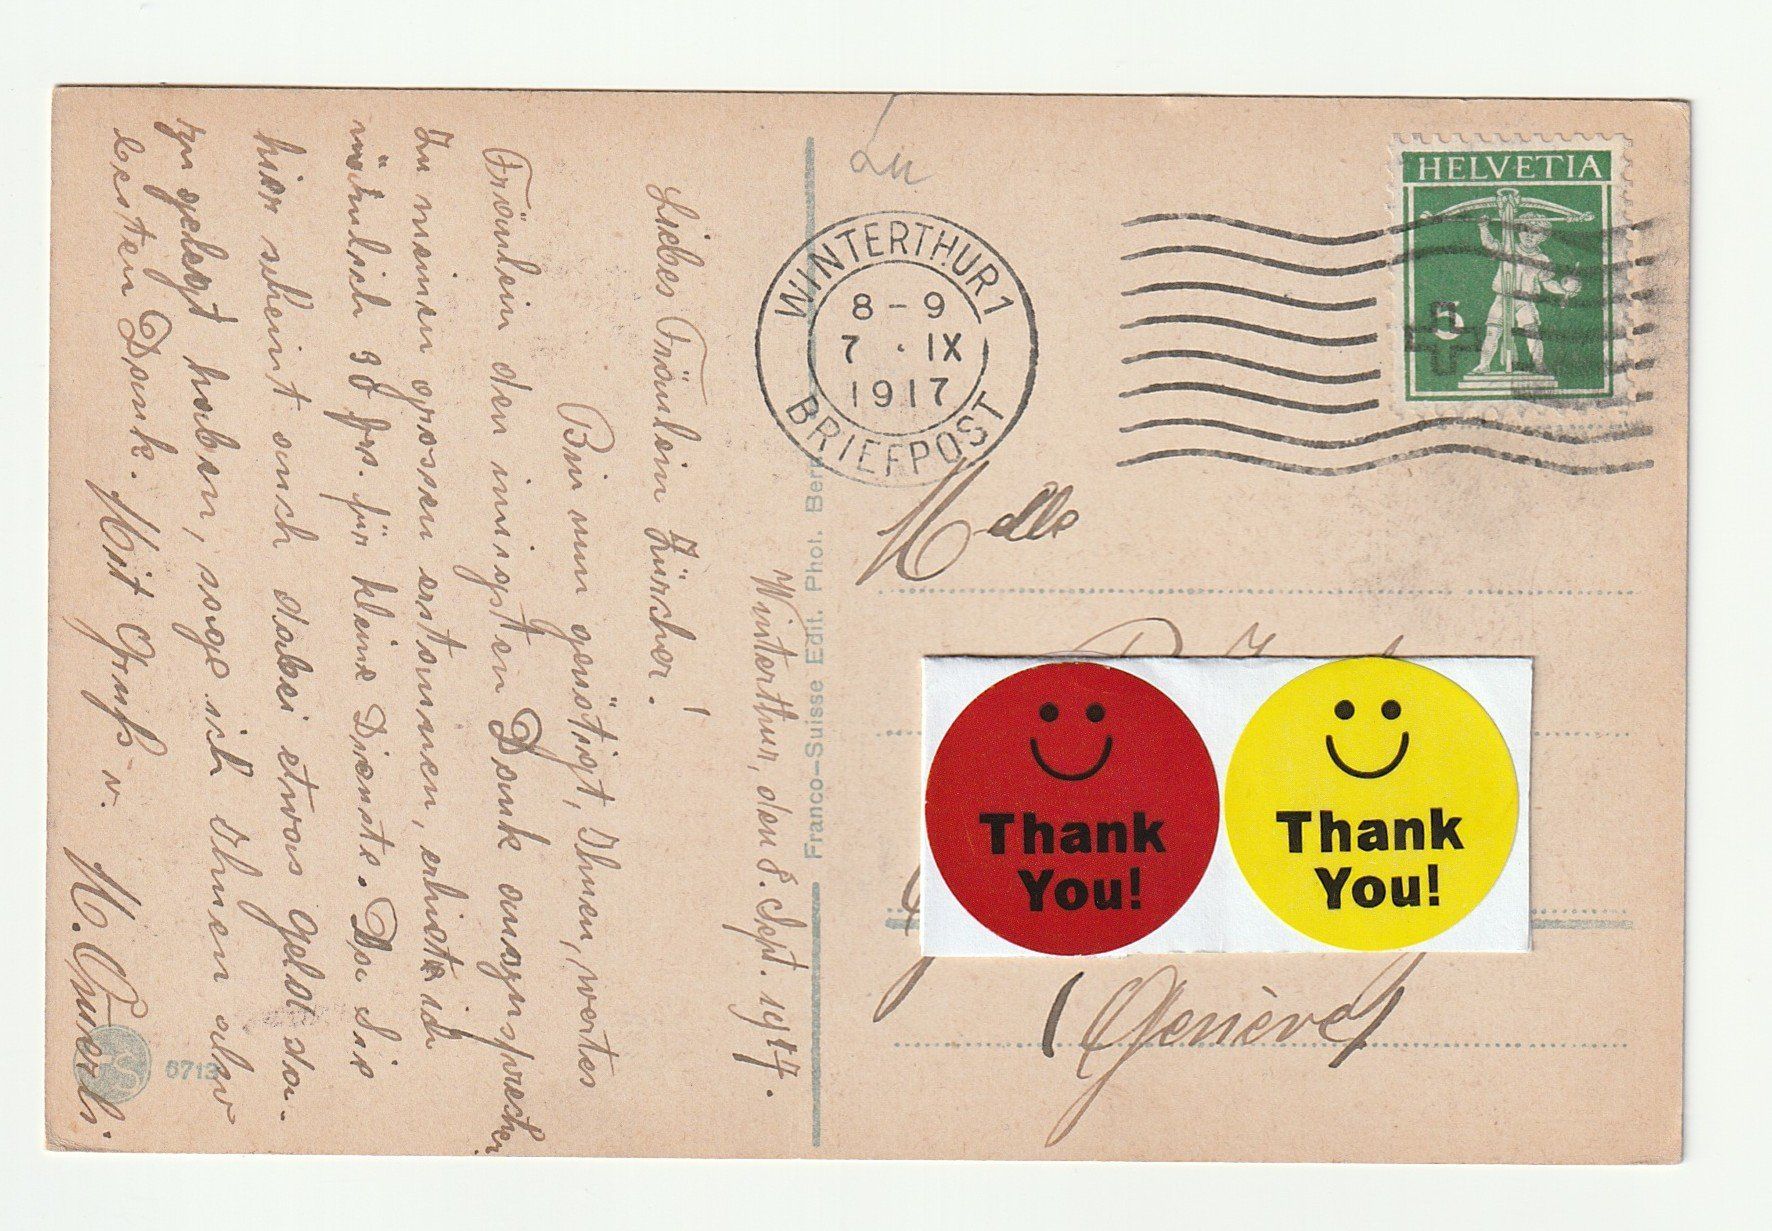 Winterthur, den 8. Sept. 1917.
Liebes Fräulein Zürcher!
Bin nun genötigt, Ihnen, wertes
Fräulein den innigsten Dank auszusprechen
Zu meinem grossen erstaunen, erhielt ich
nämlich 90 frs. für kleine Dienste. Da Sie
hier scheint auch dabei etwas Geld da-
zu gelegt haben, sage ich Ihnen aller
besten Dank. Mit Gruß v.
6713
Franco-Suisse Edit. Phot. Bern
WINTERTHUR 1
8-9
7 . IX
1917
BRIEFPOST
HELVETIA
5
Melle
Thank You!
Thank You!
(Genève)